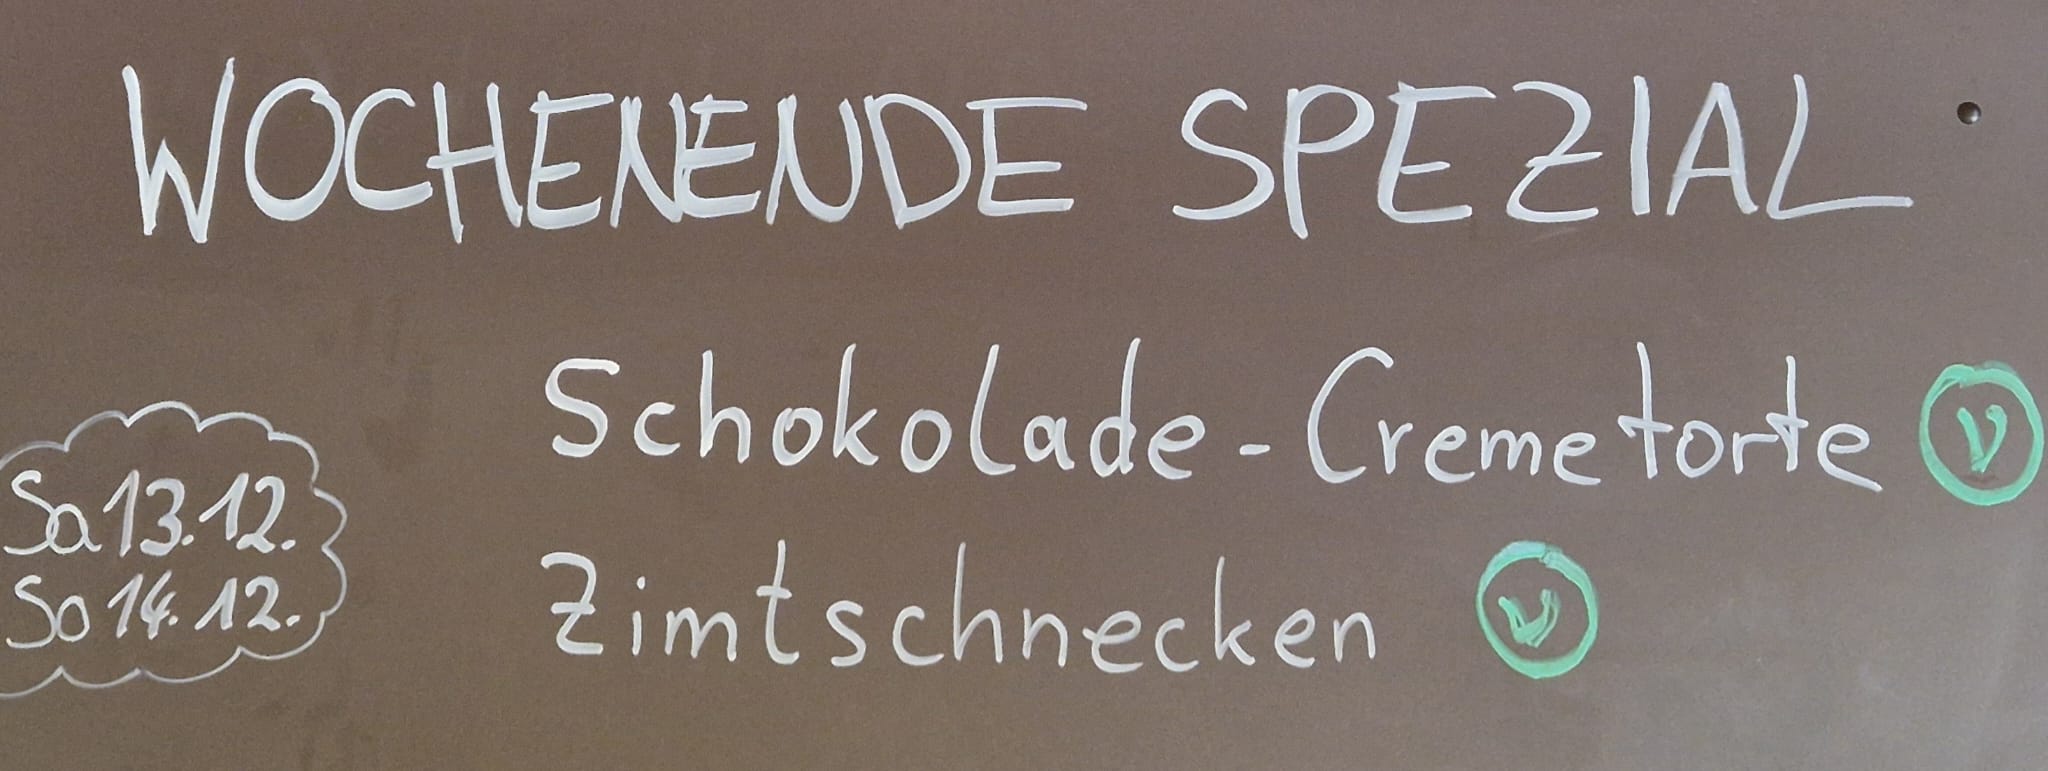 WOCHENENDE SPEZIAL
Schokolade-Cremetorte V
Sa 13.12.
So 14.12.
Zimtschnecken V